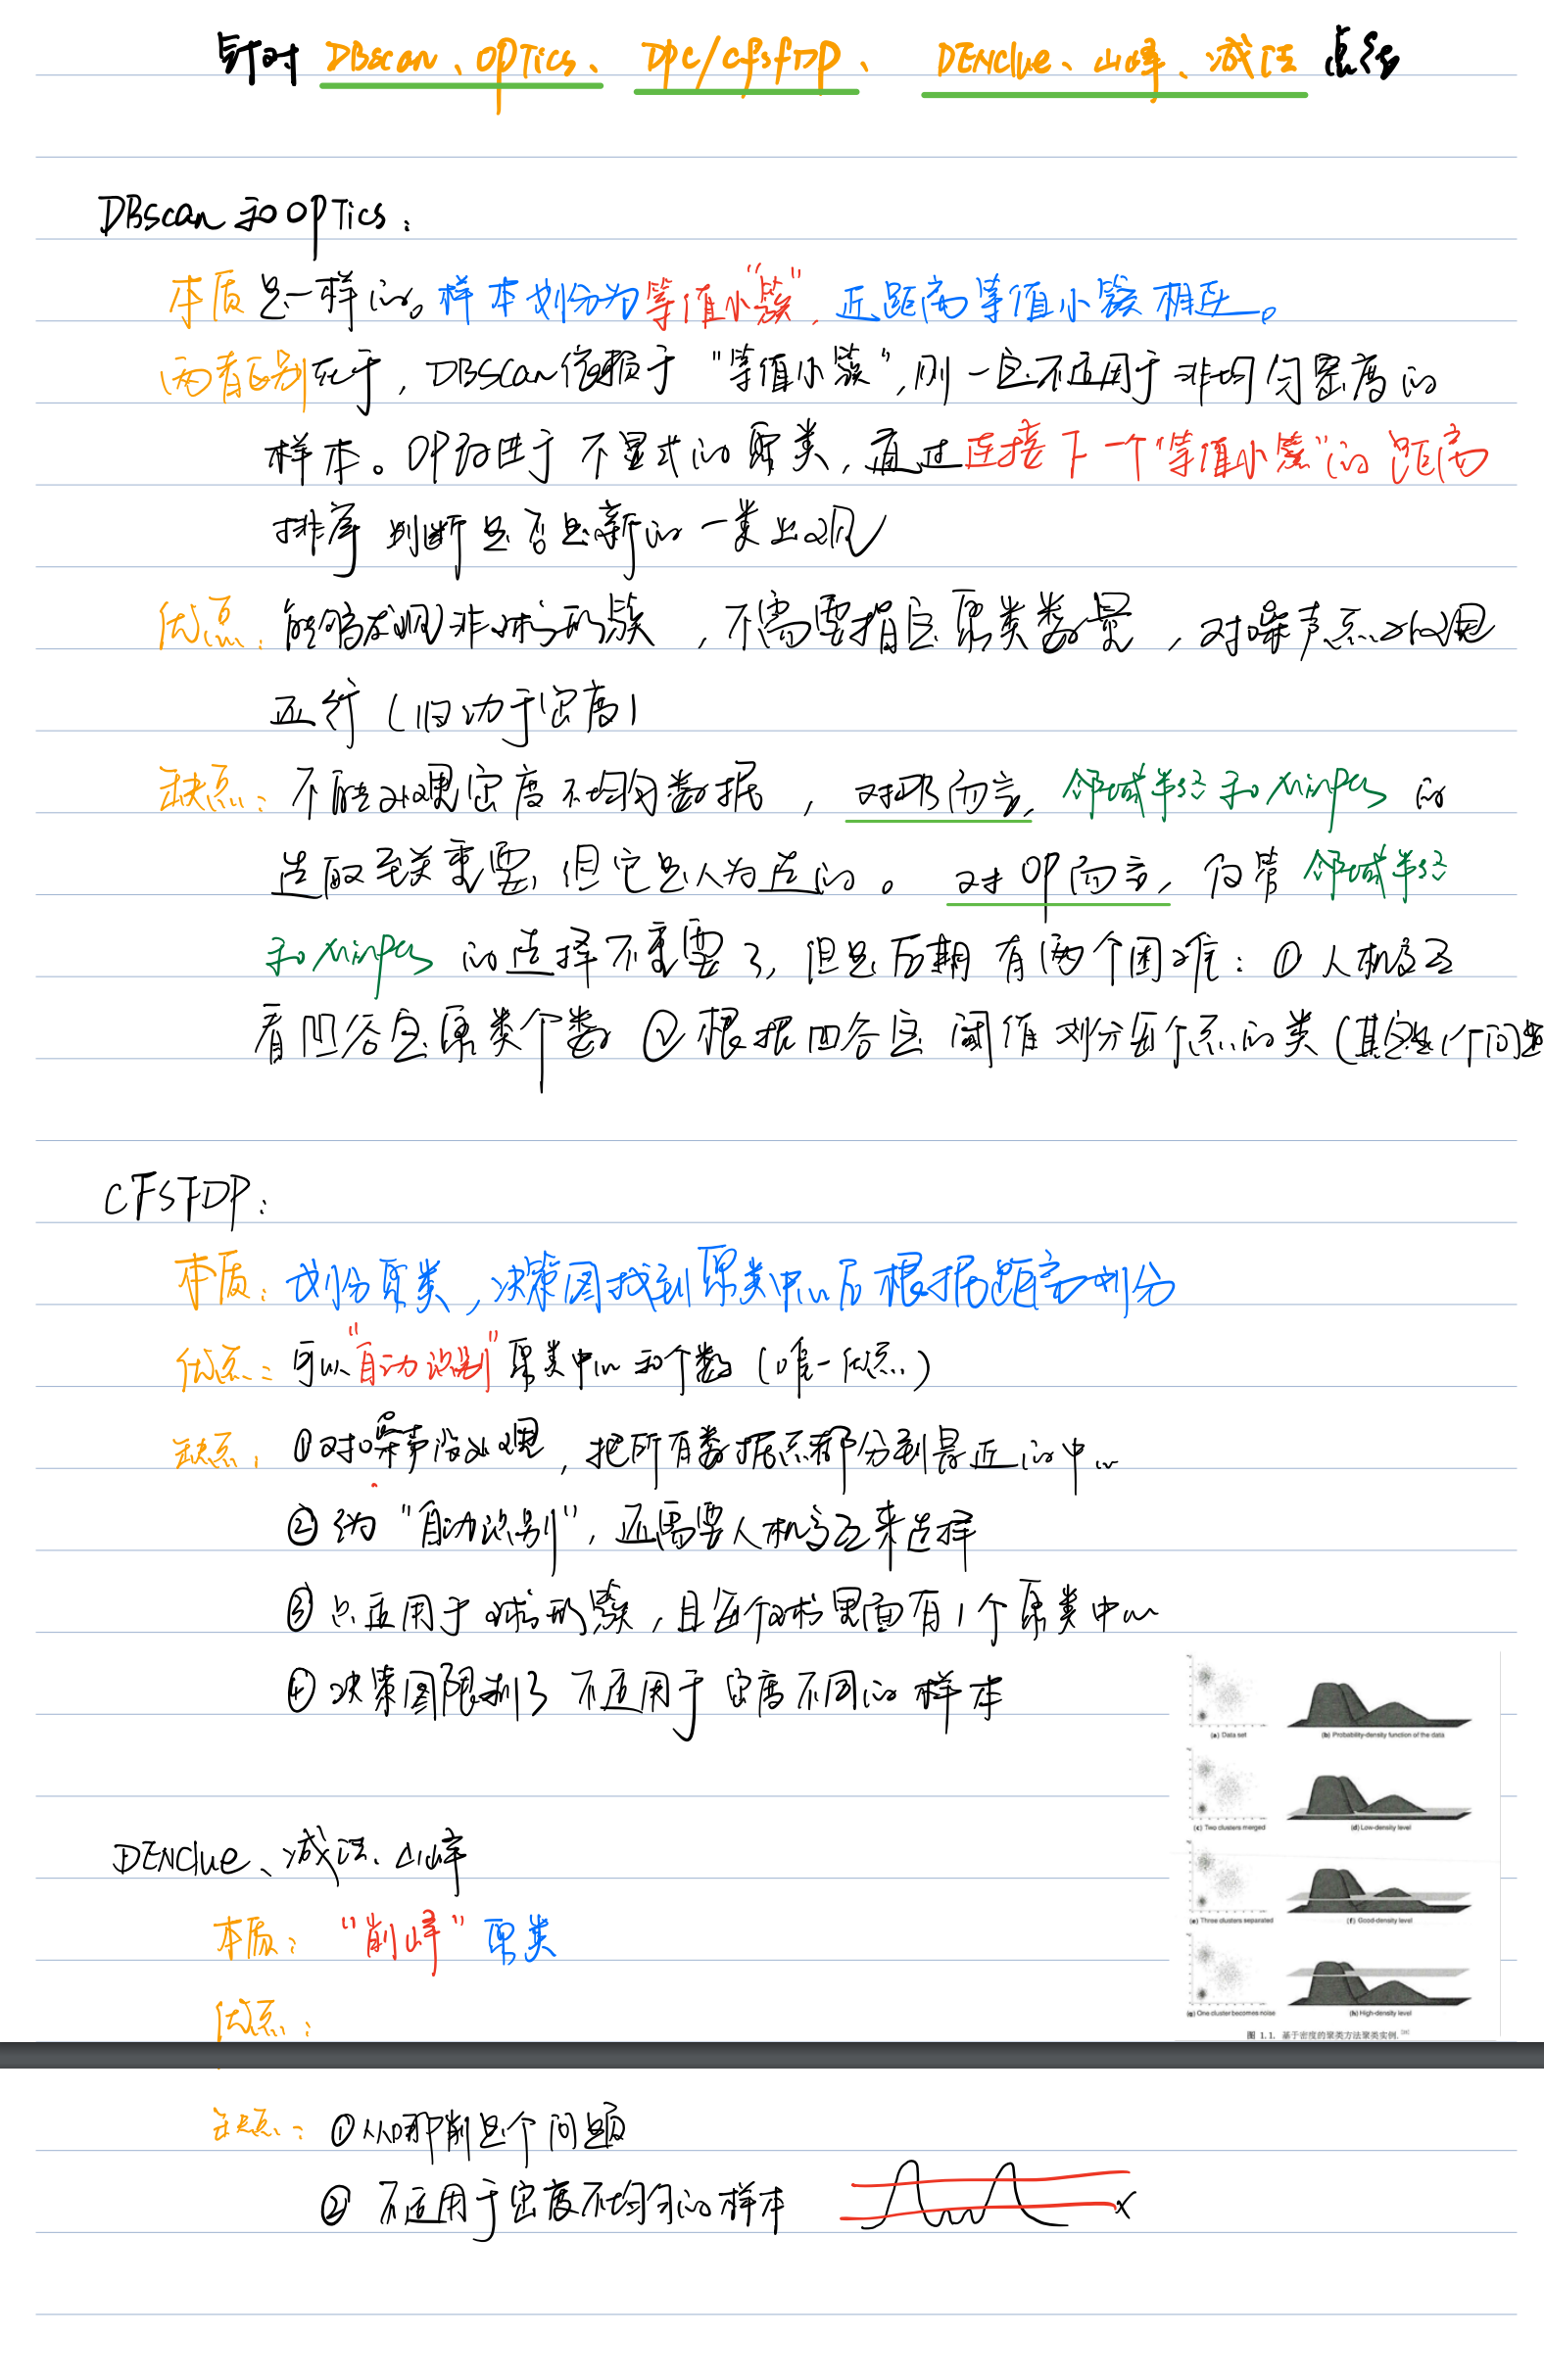 针对 DBscan、OPTics、 Dpc/cfsfDp、 DENclue、山峰、减法 总结
DBscan 和 OPTics：
本质是一样的。样本划分为等值小“簇”，近距离等值小簇相连。
两者区别在于，DBSCan依赖于“等值小簇”，则一定不适用于非均匀密度的
样本。OP改进于不显式的聚类，通过连接下一个“等值小簇”的距离
排序 判断是否是新的一类出现
优点：能够发现非球形簇，不需要指定聚类数量，对噪声点处理
还行（归功于密度）
缺点：不能处理密度不均匀数据，对DB而言，邻域半径和Minpts的
选取至关重要，但它是人为选的。对OP而言，尽管邻域半径
和Minpts 的选择不重要了，但是后期有两个困难：① 人机交互
看凹谷定聚类个数 ② 根据凹谷定阈值划分每个点的类（其实是1个问题
CFSFDP：
本质：划分聚类，决策图找到聚类中心后根据距离划分
优点：可以“自动识别”聚类中心和个数（唯一优点）
缺点：①对噪声没处理，把所有数据点都分到最近的中心
② 伪“自动识别”，还需要人机交互来选择
③ 只适用于球形簇，且每个球里面有1个聚类中心
④ 决策图限制了不适用于密度不同的样本
(a) Data set
(b) Probability-density function of the data
(c) Two clusters merged
(d) Low-density level
(e) Three clusters separated
(f) Good-density level
(g) One cluster becomes noise
(h) High-density level
图 1.1. 基于密度的聚类方法聚类实例.
DENclue、减法、山峰
本质：“削峰”聚类
优点：
缺点：①从哪削是个问题
② 不适用于密度不均匀的样本
x